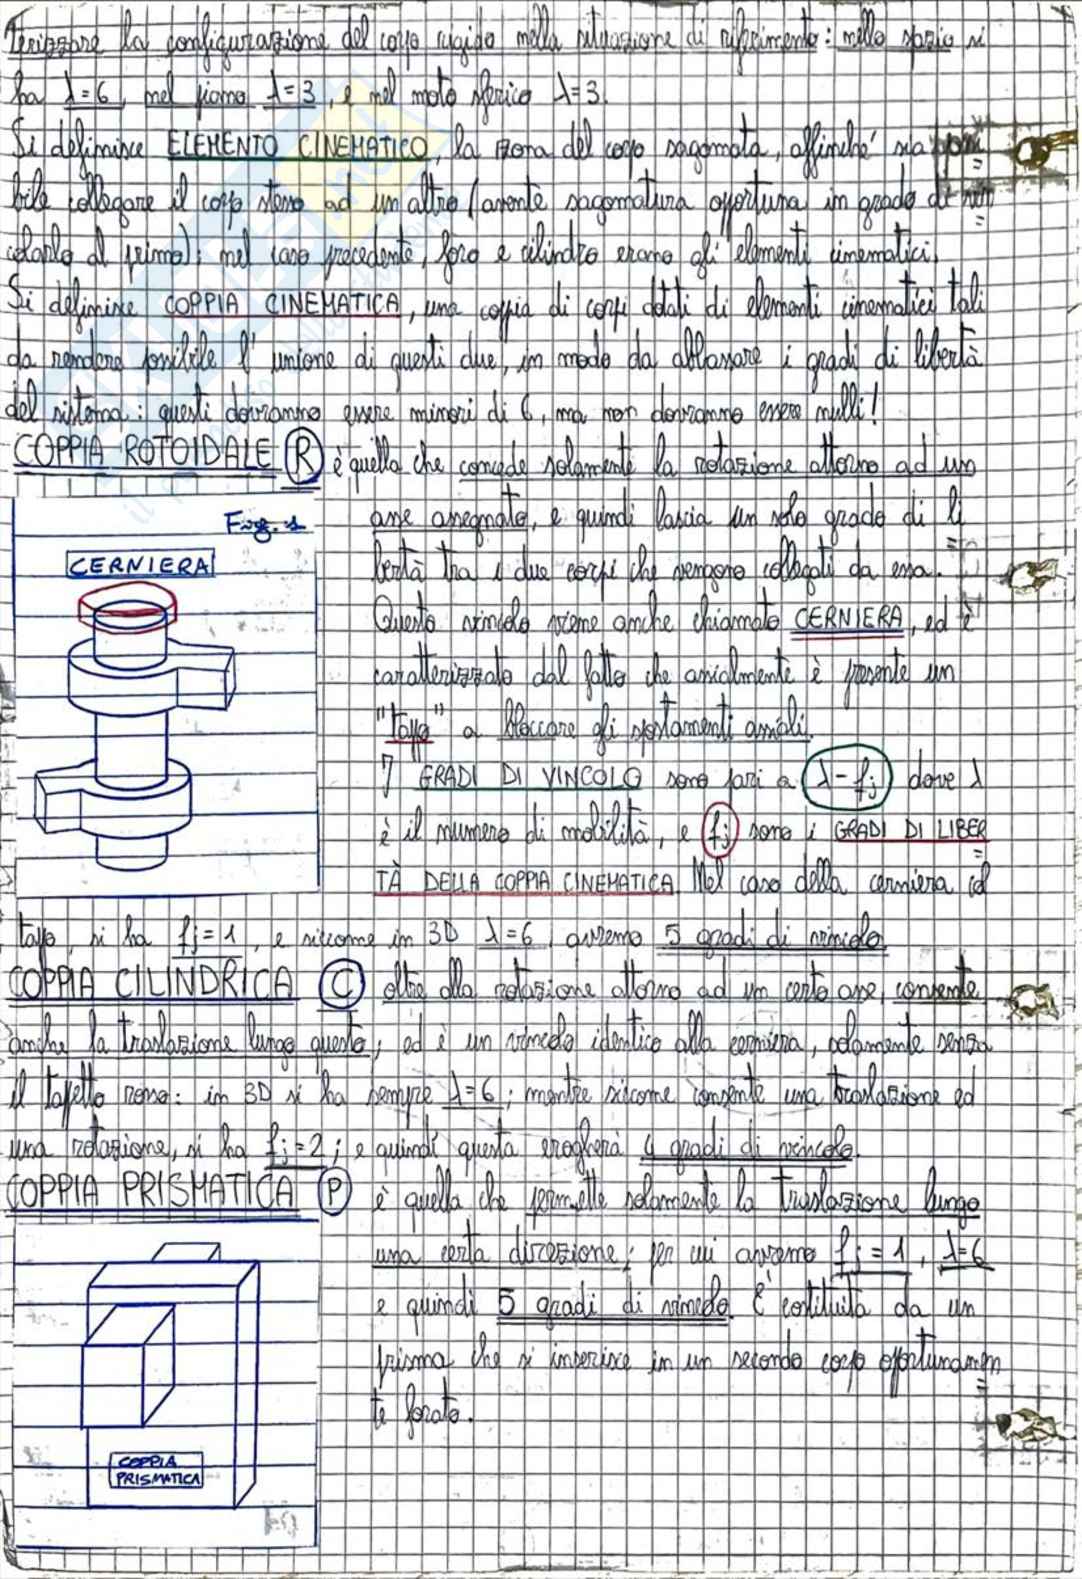 terizzare la configurazione del corpo rigido nella situazione di riferimento: nello spazio si
ha λ=6, nel piano λ=3, e nel moto sferico λ=3.
Si definisce ELEMENTO CINEMATICO, la zona del corpo sagomata, affinché sia possi
bile collegare il corpo stesso ad un altro (avente sagomatura opportuna in grado di vin
colarlo al primo); nel caso precedente, foro e cilindro erano gli elementi cinematici.
Si definisce COPPIA CINEMATICA, una coppia di corpi dotati di elementi cinematici tali
da rendere possibile l'unione di questi due, in modo da abbassare i gradi di libertà
del sistema: questi dovranno essere minori di 6, ma non dovranno essere nulli!
COPPIA ROTOIDALE (R) è quella che concede solamente la rotazione attorno ad un
asse assegnato, e quindi lascia un solo grado di li
bertà tra i due corpi che vengono collegati da essa.
Questo vincolo viene anche chiamato CERNIERA, ed è
caratterizzato dal fatto che assialmente è presente un
"tappo" a bloccare gli spostamenti assiali.
I GRADI DI VINCOLO sono pari a λ-fj dove λ
è il numero di mobilità, e fj sono i GRADI DI LIBER
TÀ DELLA COPPIA CINEMATICA. Nel caso della cerniera col
Fig. 1
CERNIERA
tappo, si ha fj=1, e siccome in 3D λ=6, avremo 5 gradi di vincolo.
COPPIA CILINDRICA (C) oltre alla rotazione attorno ad un certo asse, consente
anche la traslazione lungo questo, ed è un vincolo identico alla cerniera, solamente senza
il tappetto rosso: in 3D si ha sempre λ=6; mentre siccome consente una traslazione ed
una rotazione, si ha fj=2; e quindi questa erogherà 4 gradi di vincolo.
COPPIA PRISMATICA (P) è quella che permette solamente la traslazione lungo
una certa direzione; per cui avremo fj=1, λ=6
e quindi 5 gradi di vincolo. È costituita da un
prisma che si inserisce in un secondo corpo opportunamen
te forato.
COPPIA
PRISMATICA